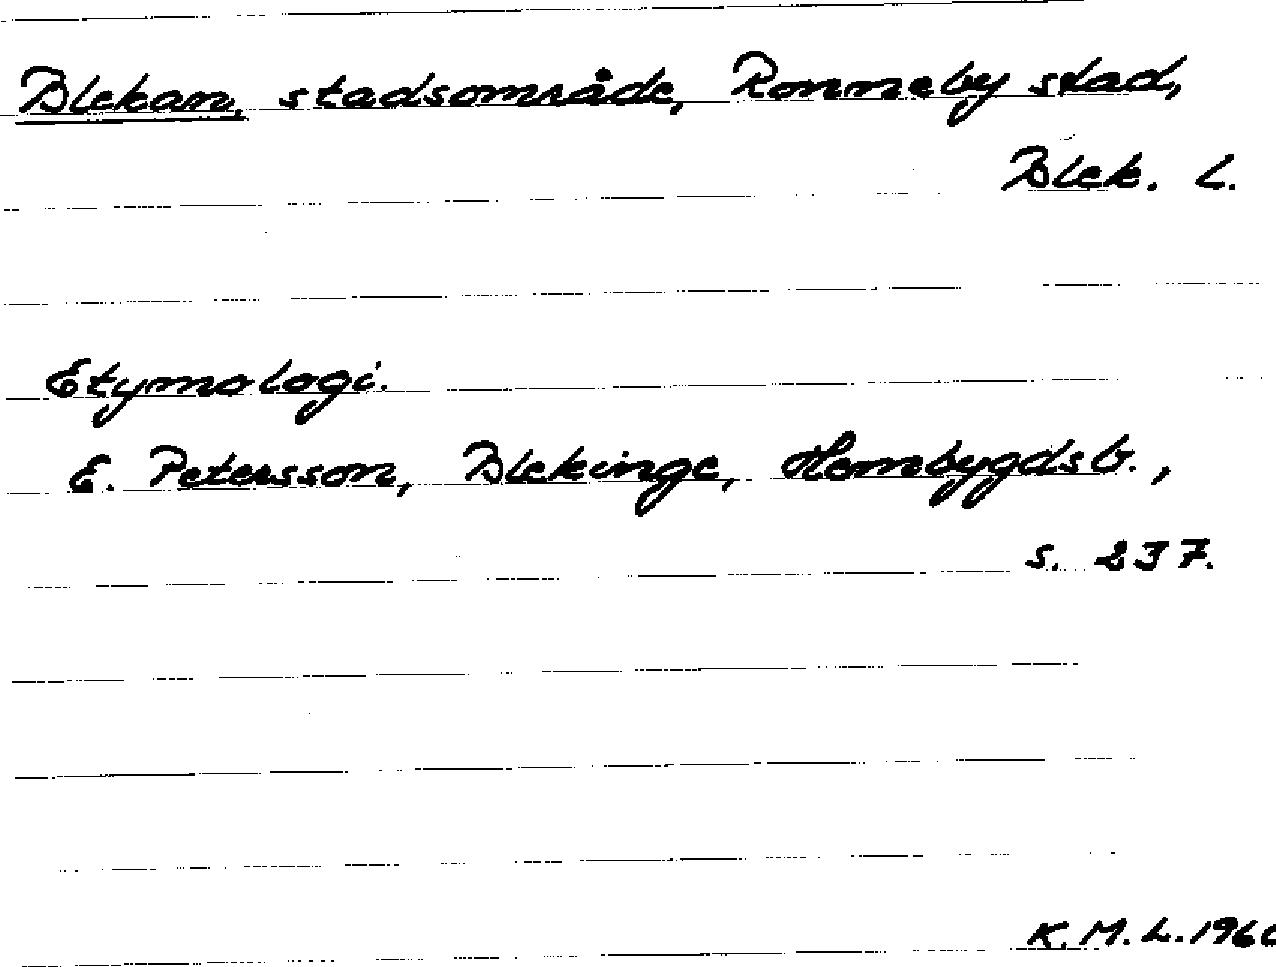 Blekan, stadsområde, Ronneby stad,
Blek. l.
Etymologi.
E. Petersson, Blekinge, Hembygdsb.,
s. 237.
K. M. L. 1960